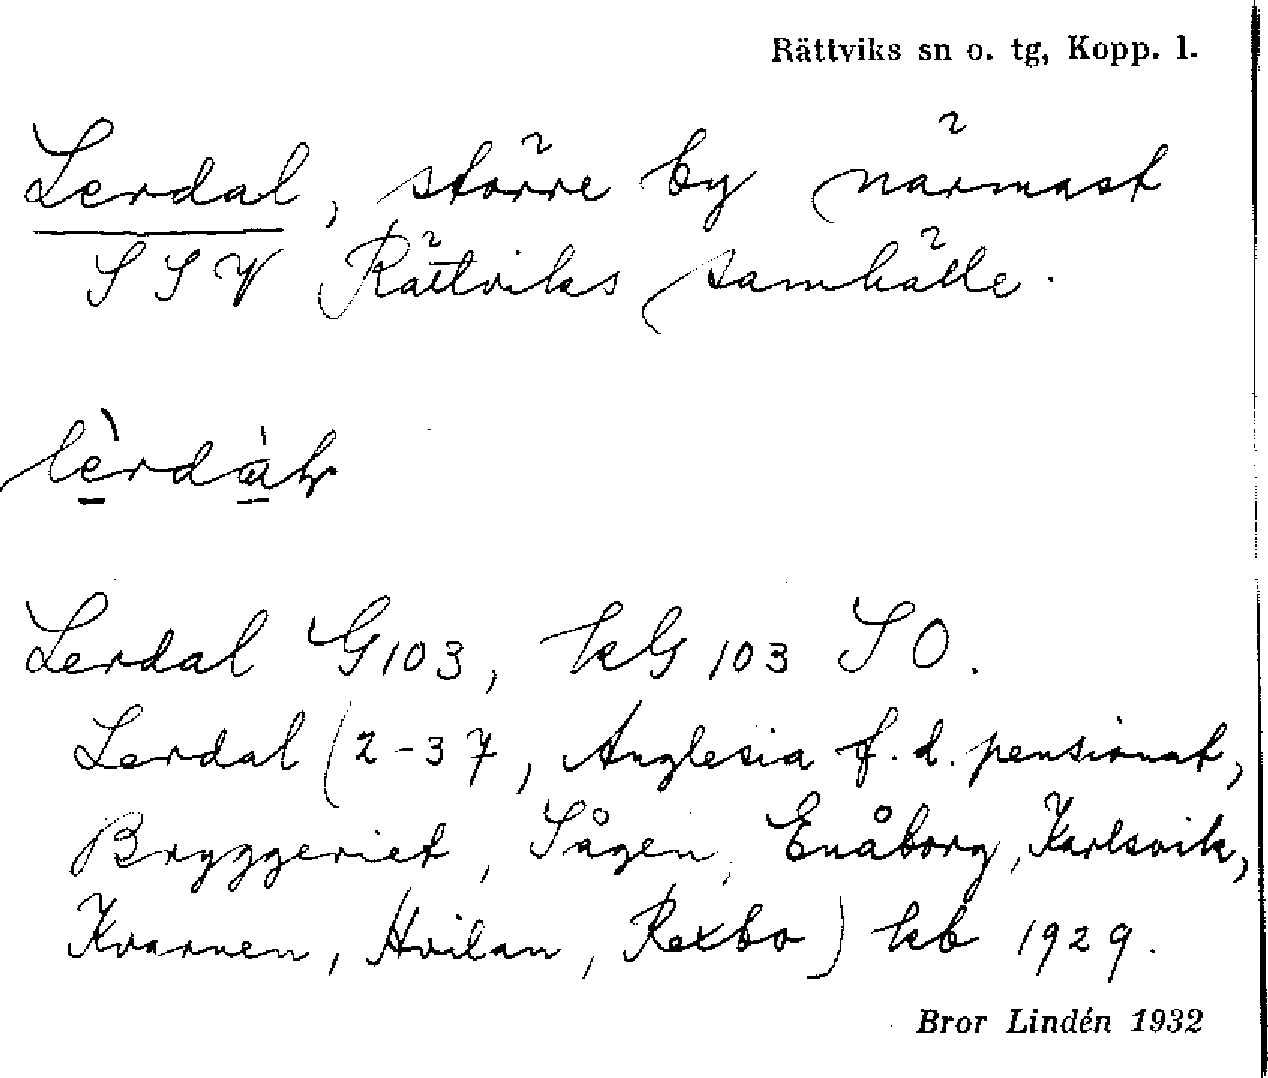 Rättviks sn o. tg, Kopp. l.
Lerdal, större by närmast
SSV Rättviks samhälle.
Lerdal G103, kG103 SO.
Lerdal (2-37, Anglesia f.d. pensionat,
Bryggeriet, Sågen, Enåborg, Karlsvik,
Kvarnen, Hvilan, Rexbo) kb 1929.
Bror Lindén 1932